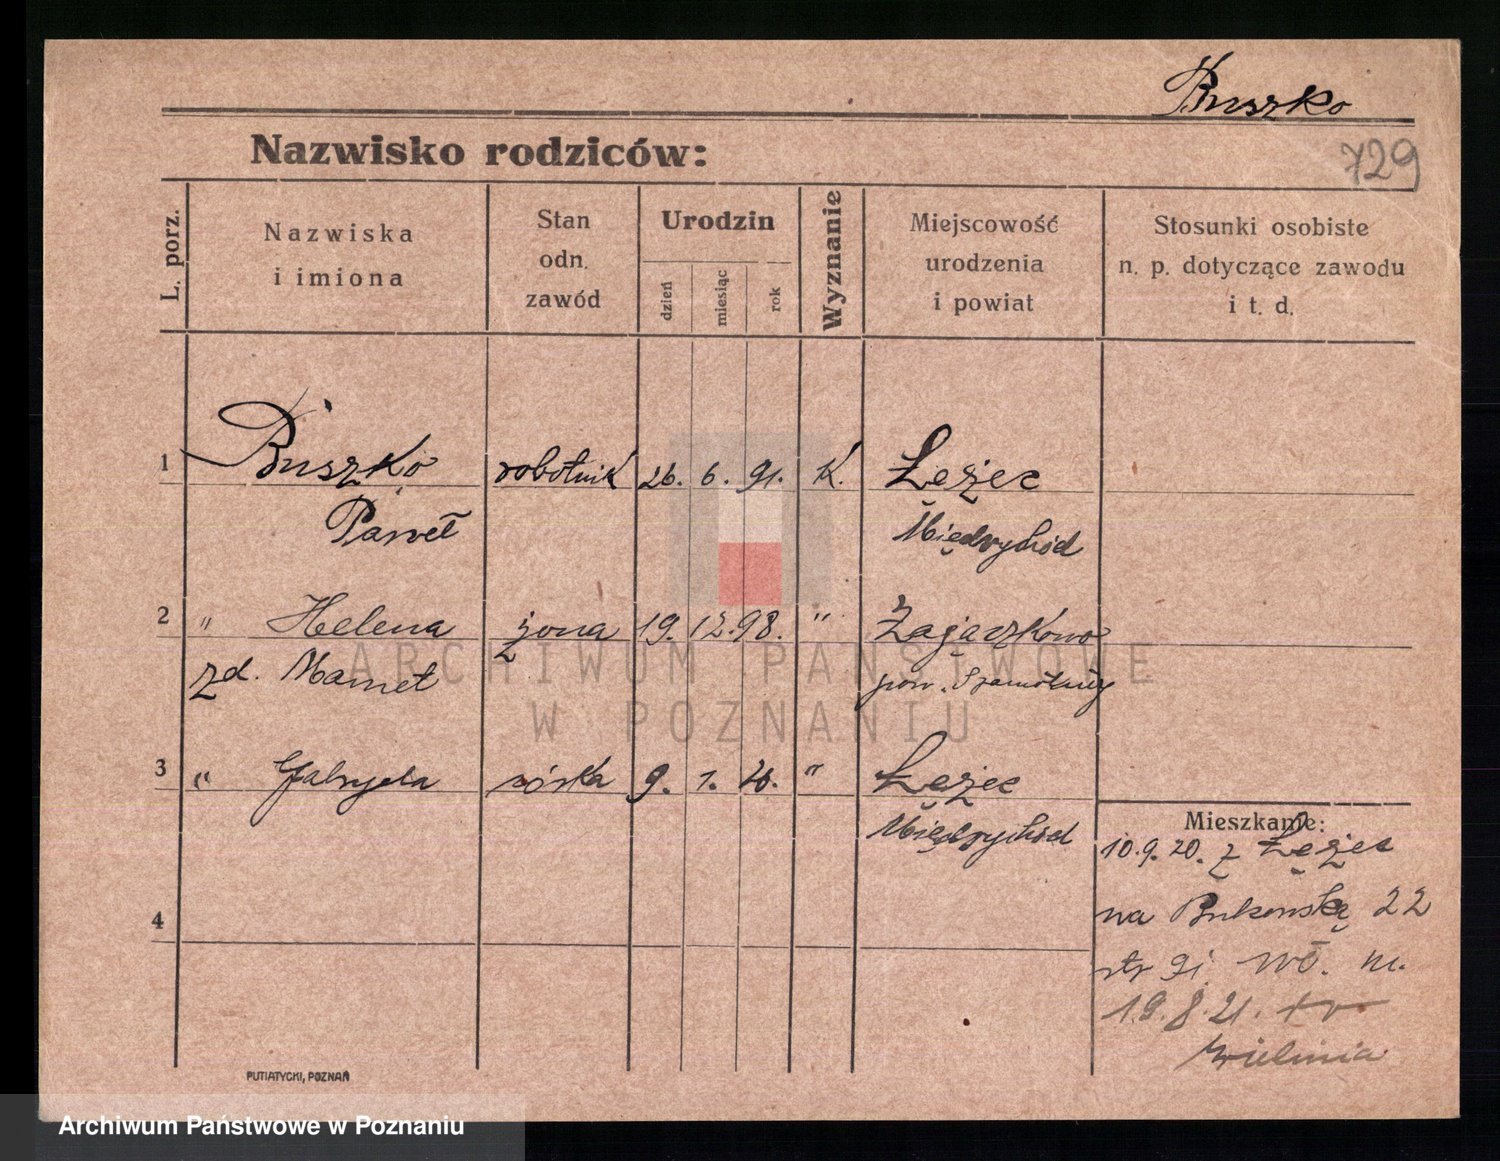 Buszko
729
Nazwisko rodziców:
L. porz.
Nazwiska
i imiona
Stan
odn.
zawód
Urodzin
dzień
miesiąc
rok
Wyznanie
Miejscowość
urodzenia
i powiat
Stosunki osobiste
n. p. dotyczące zawodu
i t. d.
1 Buszko robotnik 26. 6. 91. K. Łężec
Paweł Międzychód
2 " Helena żona 19. 12. 98. " Zajączkowo
zd. Mamet pow. Szamotuły
3 " Gabryela córka 9. 1. 20. " Łężec
Międzychód
Mieszkanie:
10.9.20. z Łężec
4 na Bukowską 22
19.8.21.
ARCHIWUM PAŃSTWOWE
W POZNANIU
PUTIATYCKI, POZNAŃ
Archiwum Państwowe w Poznaniu